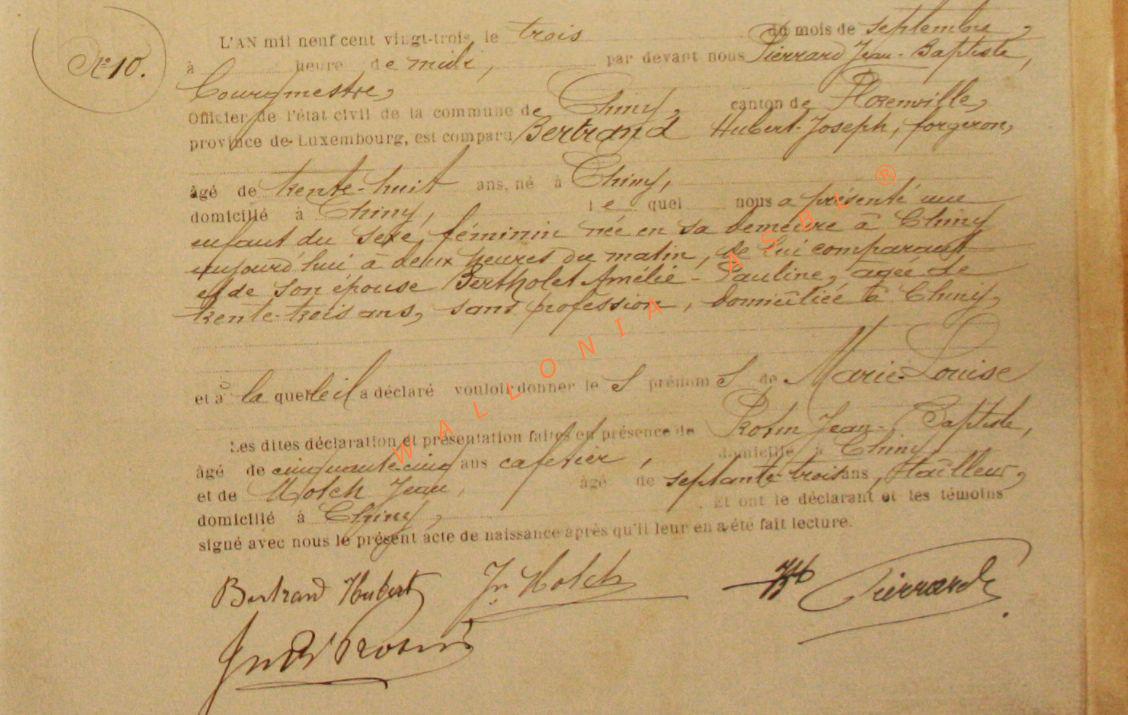 N° 10.
L'AN mil neuf cent vingt-trois, le trois du mois de septembre,
à heure de midi, par devant nous Pierrard Jean-Baptiste,
Bourgmestre,
Officier de l'état civil de la commune de Chiny, canton de Florenville,
province de Luxembourg, est comparu Bertrand Hubert-Joseph, forgeron,
âgé de trente-huit ans, né à Chiny,
domicilié à Chiny, le quel nous a présenté une
enfant du sexe féminin née en sa demeure à Chiny
aujourd'hui à deux heures du matin, de lui comparant
et de son épouse Bertholet Amélie-Pauline, agée de
trente-trois ans, sans profession, domiciliée à Chiny,
et à la quelle il a déclaré vouloir donner les prénoms de Marie-Louise
Les dites déclaration et présentation faites en présence de Rosin Jean-Baptiste,
âgé de cinquante cinq ans cafetier, domicilié à Chiny
et de Holch Jean, âgé de septante-trois ans, tailleur,
domicilié à Chiny, Et ont le déclarant et les témoins
signé avec nous le présent acte de naissance après qu'il leur en a été fait lecture.
Bertrand Hubert Jn Holch Pierrard
Jn Bt Rosin
WALLONIA ASBL ®